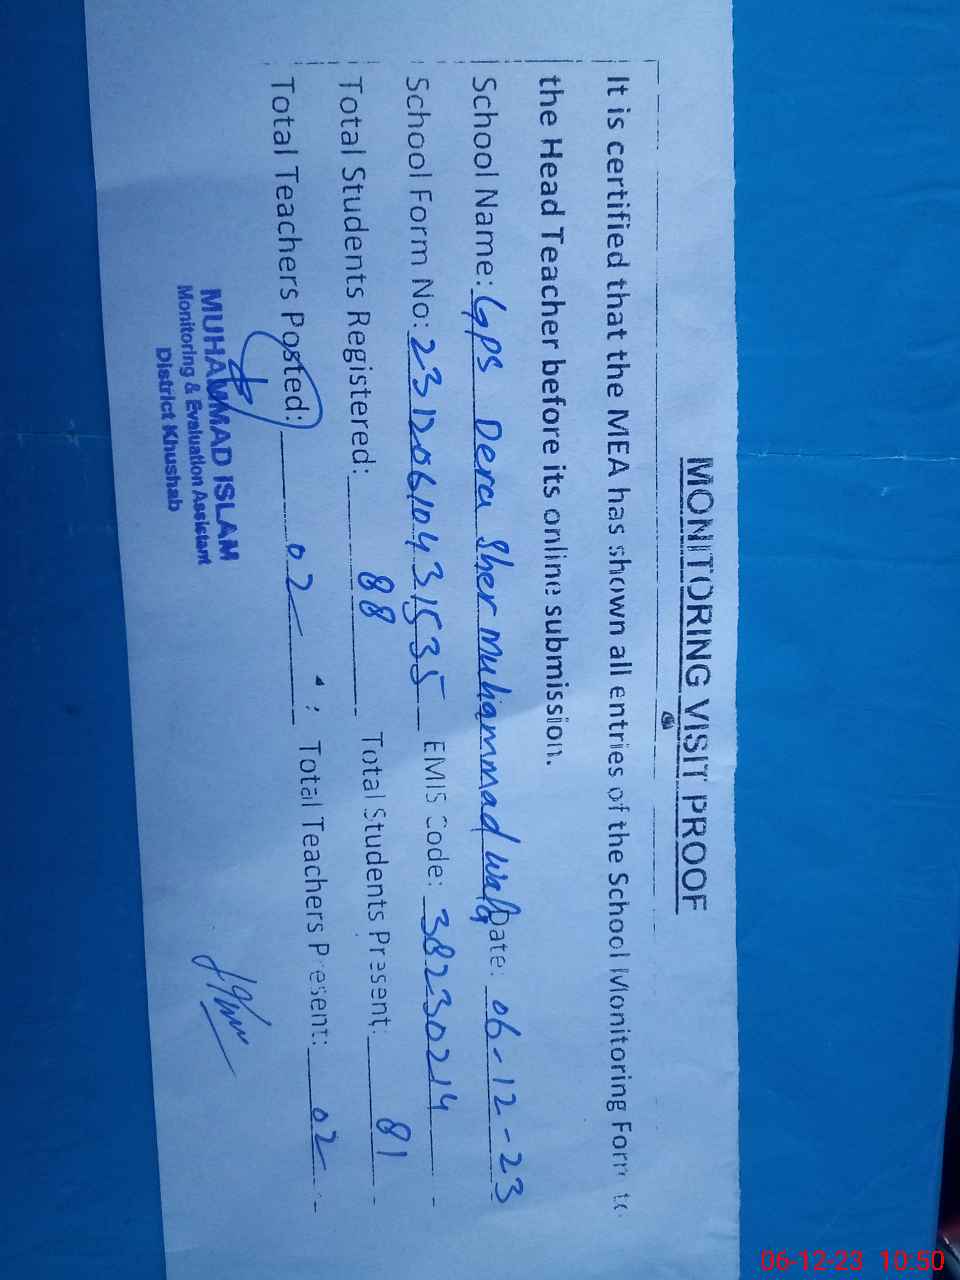 MONITORING VISIT PROOF
It is certified that the MEA has shown all entries of the School Monitoring Form to
the Head Teacher before its online submission.
School Name: Gps Dera Sher Muhammad wala Date: 06-12-23
School Form No: 23120610431535 EMIS Code: 38230214
Total Students Registered: 88 Total Students Present: 81
Total Teachers Posted: 02 Total Teachers Present: 02
MUHAMMAD ISLAM
Monitoring & Evaluation Assistant
District Khushab
06-12-23 10:50